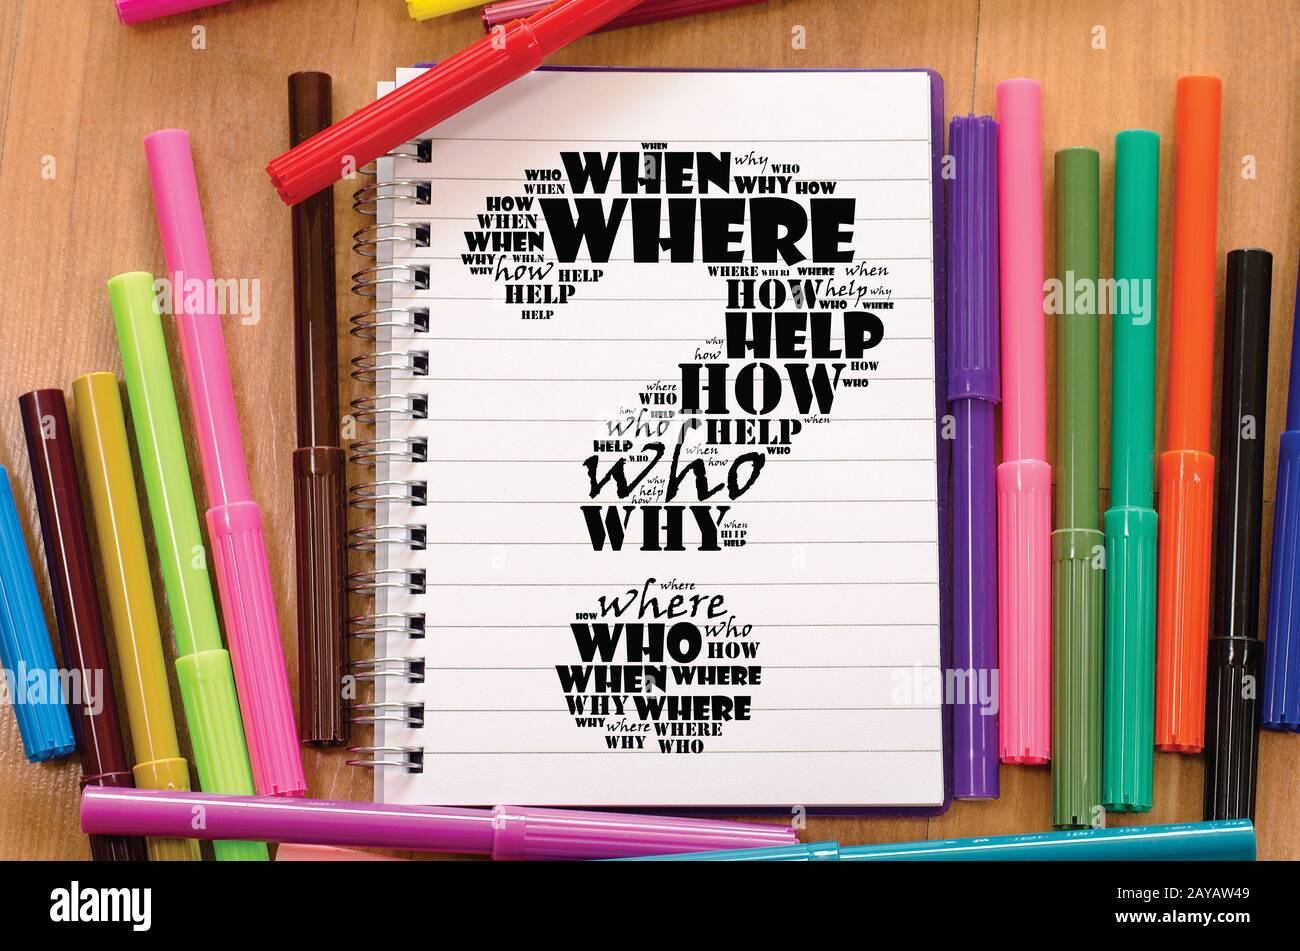 WHEN
WHO WHEN why WHO
WHEN WHY HOW
HOW WHERE
WHEN
WHEN
WHY WHEN
WHY how HELP WHERE WHERE WHERE when
HELP HOW help why
WHO WHERE
HELP
HELP
why
how HOW HOW
where WHO
WHO
how HELP
who HELP when
HELP WHO when WHO
who how
why
help
how
WHY when
HELP
HELP
where
where
HOW
WHO who
HOW
WHEN WHERE
WHY WHERE
WHY where WHERE
WHY WHO
a alamy
Image ID: 2AYAW49
www.alamy.com